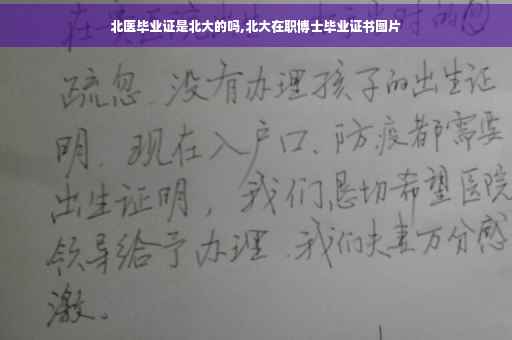 北医毕业证是北大的吗,北大在职博士毕业证书图片
疏忽、没有办理孩子的出生证
明、现在入户口、防疫都需要
出生证明，我们恳切希望医院
领导给予办理、我们夫妻万分感
激。